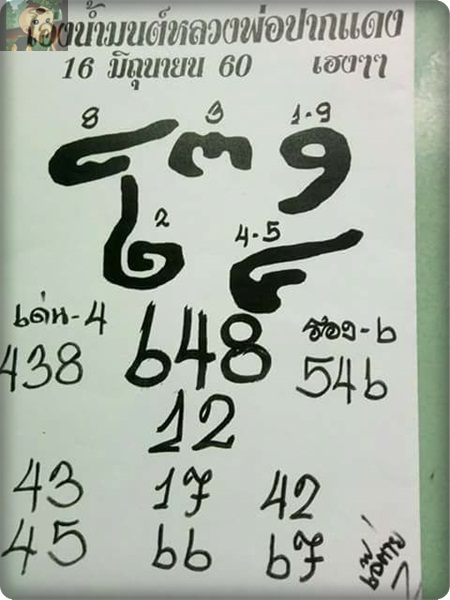 น้ำมนต์หลวงพ่อปากแดง
16 มิถุนายน 60 เฮงๆๆ
8 3 1-9
2 4-5
เด่น-4 648 รอง-6
438 546
12
43 17 42
45 66 67